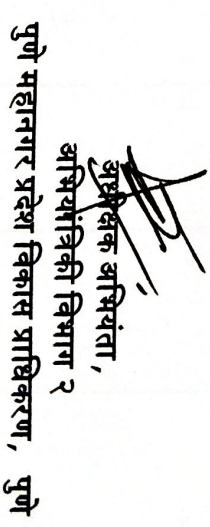 अधीक्षक अभियंता,
अभियांत्रिकी विभाग २
पुणे महानगर प्रदेश विकास प्राधिकरण, पुणे